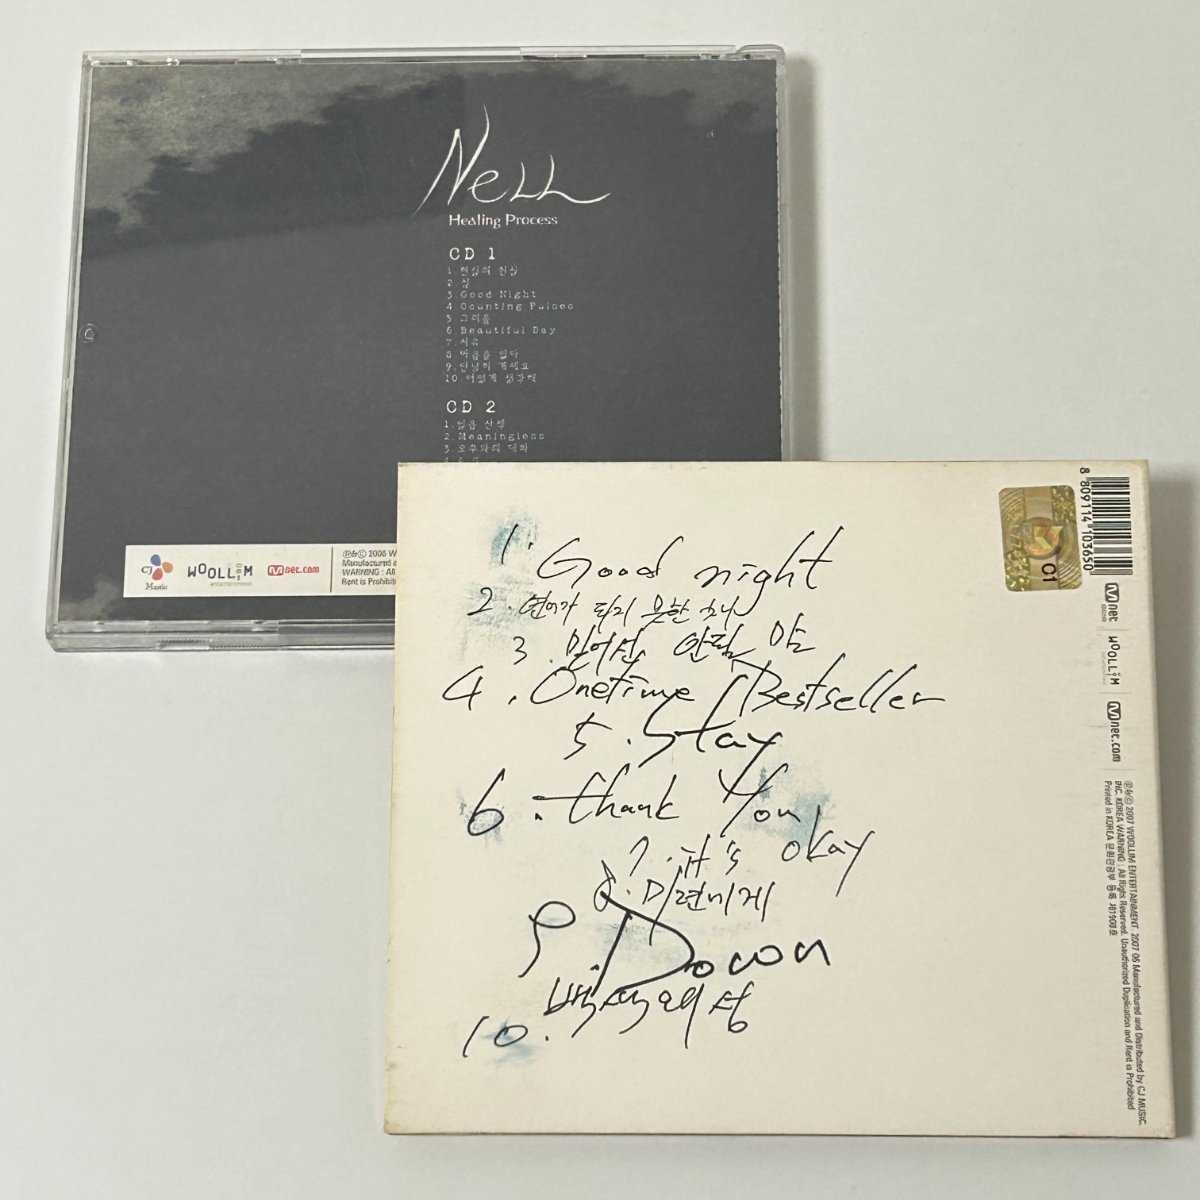 Nell
Healing Process
CD 1
1.현실의 현실
2.섬
3.Good Night
4.Counting Pulses
5.그리움
6.Beautiful Day
7.치유
8.마음을 잃다
9.안녕히 계세요
10.어떻게 생각해
CD 2
1.얼음 산책
2.Meaningless
3.오후와의 대화
CJ
Music
WOOLLIM
entertainment
Mnet.com
℗&© 2006 W
Manufactured a
WARNING : All
Rent is Prohibit
1. Good night
2. 연어가 되지 못한 채
3. 믿어선 안될 말
4. Onetime Bestseller
5. Stay
6. Thank You
7. it's okay
8. 미련에게
9. Down
10. 백색왜성
01
8 809114 103650
Mnet
WOOLLIM
Mnet.com
℗&© 2007 WOOLLIM ENTERTAINMENT 2007 06 Manufactured and Distributed by CJ MUSIC.
INC. KOREA WARNING : All Rights Reserved. Unauthorized Duplication and Rent is Prohibited
Printed in KOREA 문화관광부 등록 제1908호